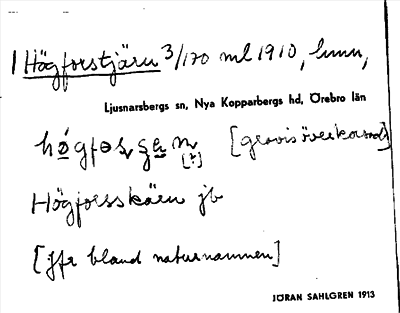 1 Högforstjärn 3/170 ml 1910, hmn,
Ljusnarsbergs sn, Nya Kopparbergs hd, Örebro län
[gravis överkorsad]
[?]
Högforsskären jb
[jfr bland naturnamnen]
JÖRAN SAHLGREN 1913